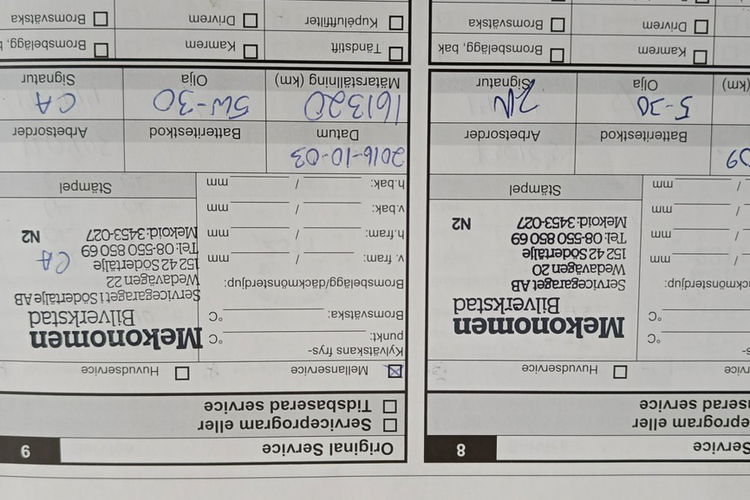 Service 8
eprogram eller
serad service
rvice
Huvudservice
s-
°C
°C
Mekonomen
Bilverkstad
Servicegaraget AB
Wedavägen 20
152 42 Södertälje
Tel: 08-550 850 69
Mekoid: 3453-027 N2
önsterdjup:
/ mm
/ mm
/ mm
/ mm
Stämpel
09
Batteritestkod
Arbetsorder
(km)
5-30
Olja
Signatur
Kamrem
Bromsbelägg, bak
Drivrem
Bromsvätska
Original Service 9
Serviceprogram eller
Tidsbaserad service
Mellanservice
Huvudservice
Kylvätskans frys-
punkt: °C
Bromsvätska: °C
Mekonomen
Bilverkstad
Servicegaraget i Södertälje AB
Wedavägen 22
152 42 Södertälje
Tel: 08-550 850 69
Mekoid: 3453-027 N2
CA
Bromsbelägg/däckmönsterdjup:
v. fram: / mm
h.fram: / mm
v.bak: / mm
h.bak: / mm
Stämpel
2016-10-03
Datum
Batteritestkod
Arbetsorder
161320
5W-30
CA
Mätarställning (km)
Olja
Signatur
Tändstift
Kamrem
Bromsbelägg,
Kupéluftfilter
Drivrem
Bromsvätska